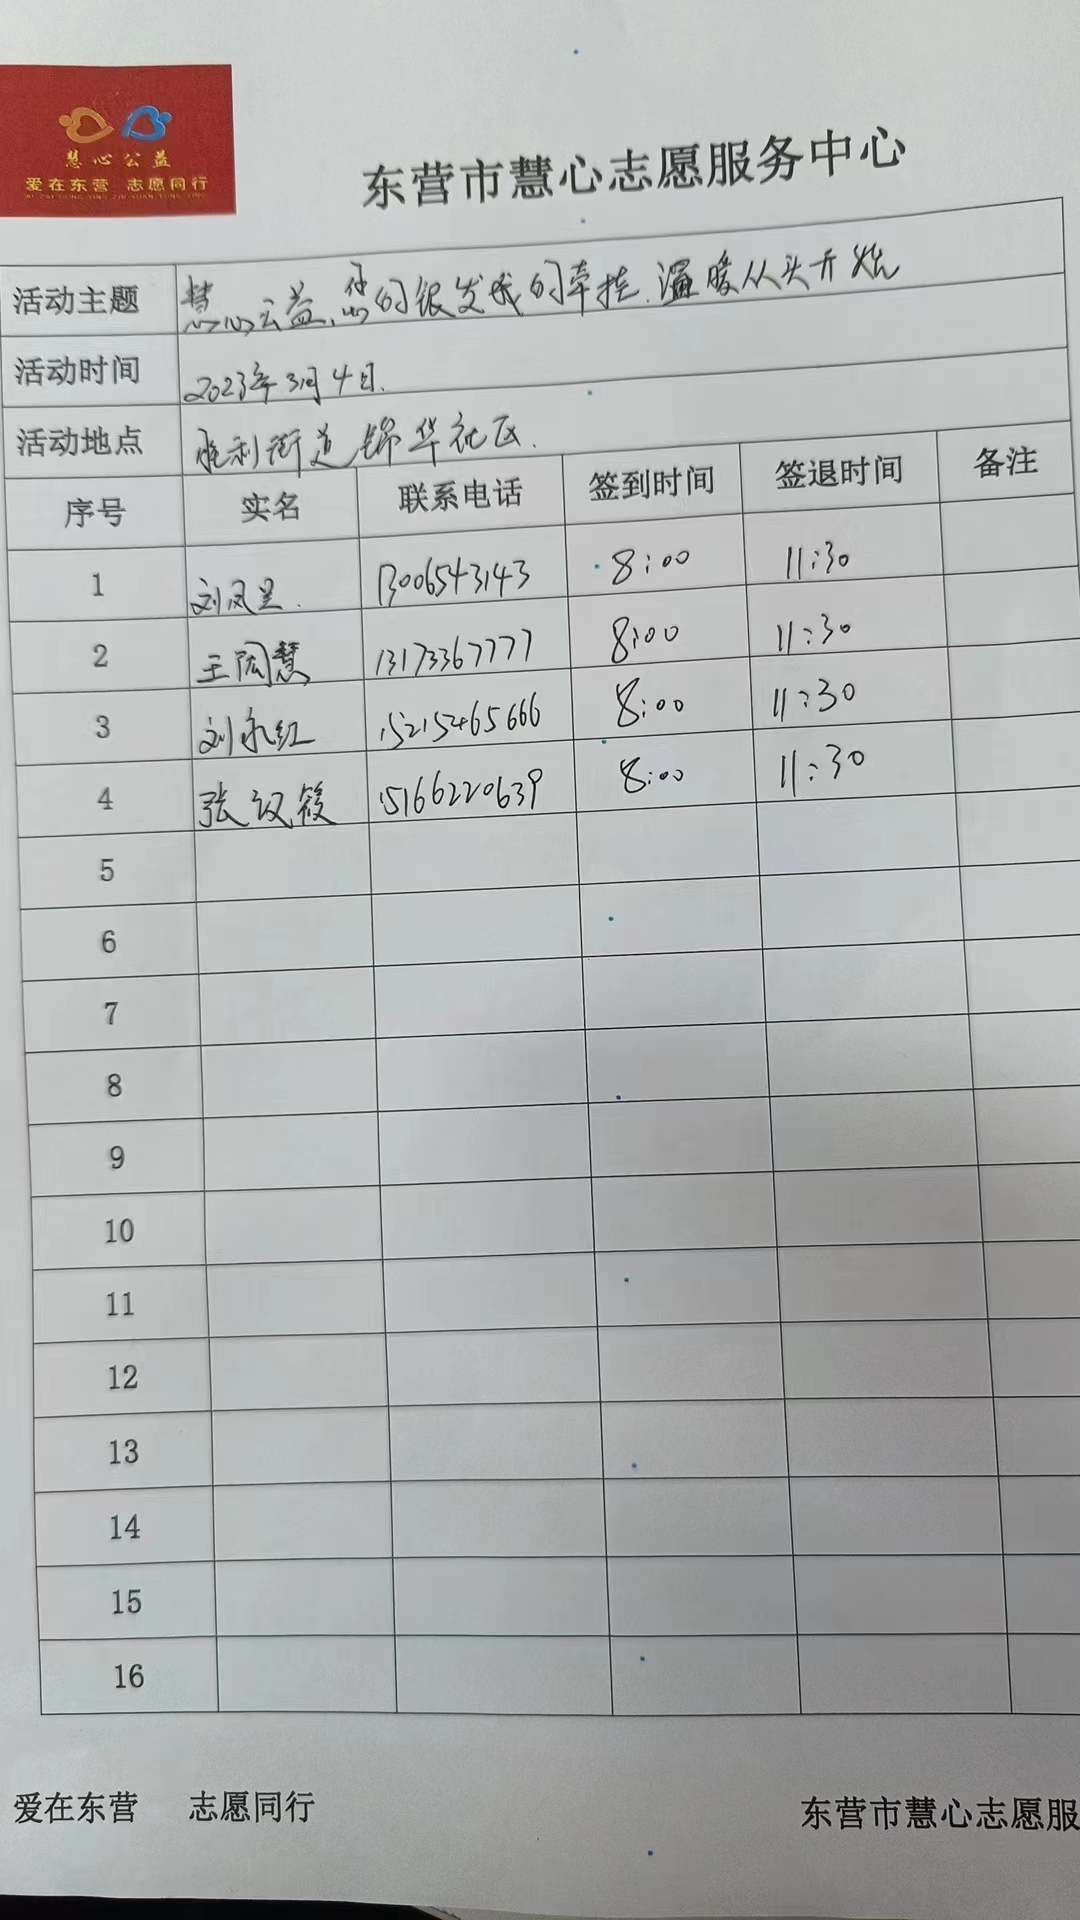 慧心公益
爱在东营 志愿同行
东营市慧心志愿服务中心
活动主题 慧心公益,您的银发我的牵挂.温暖从头开始
活动时间 2023年3月4日.
活动地点 胜利街道锦华社区.
序号 实名 联系电话 签到时间 签退时间 备注
1 刘凤 13006543143 8:00 11:30
2 王慧 13173367777 8:00 11:30
3 刘永红 15215465666 8:00 11:30
4 张筱 15166220639 8:00 11:30
5
6
7
8
9
10
11
12
13
14
15
16
爱在东营 志愿同行 东营市慧心志愿服